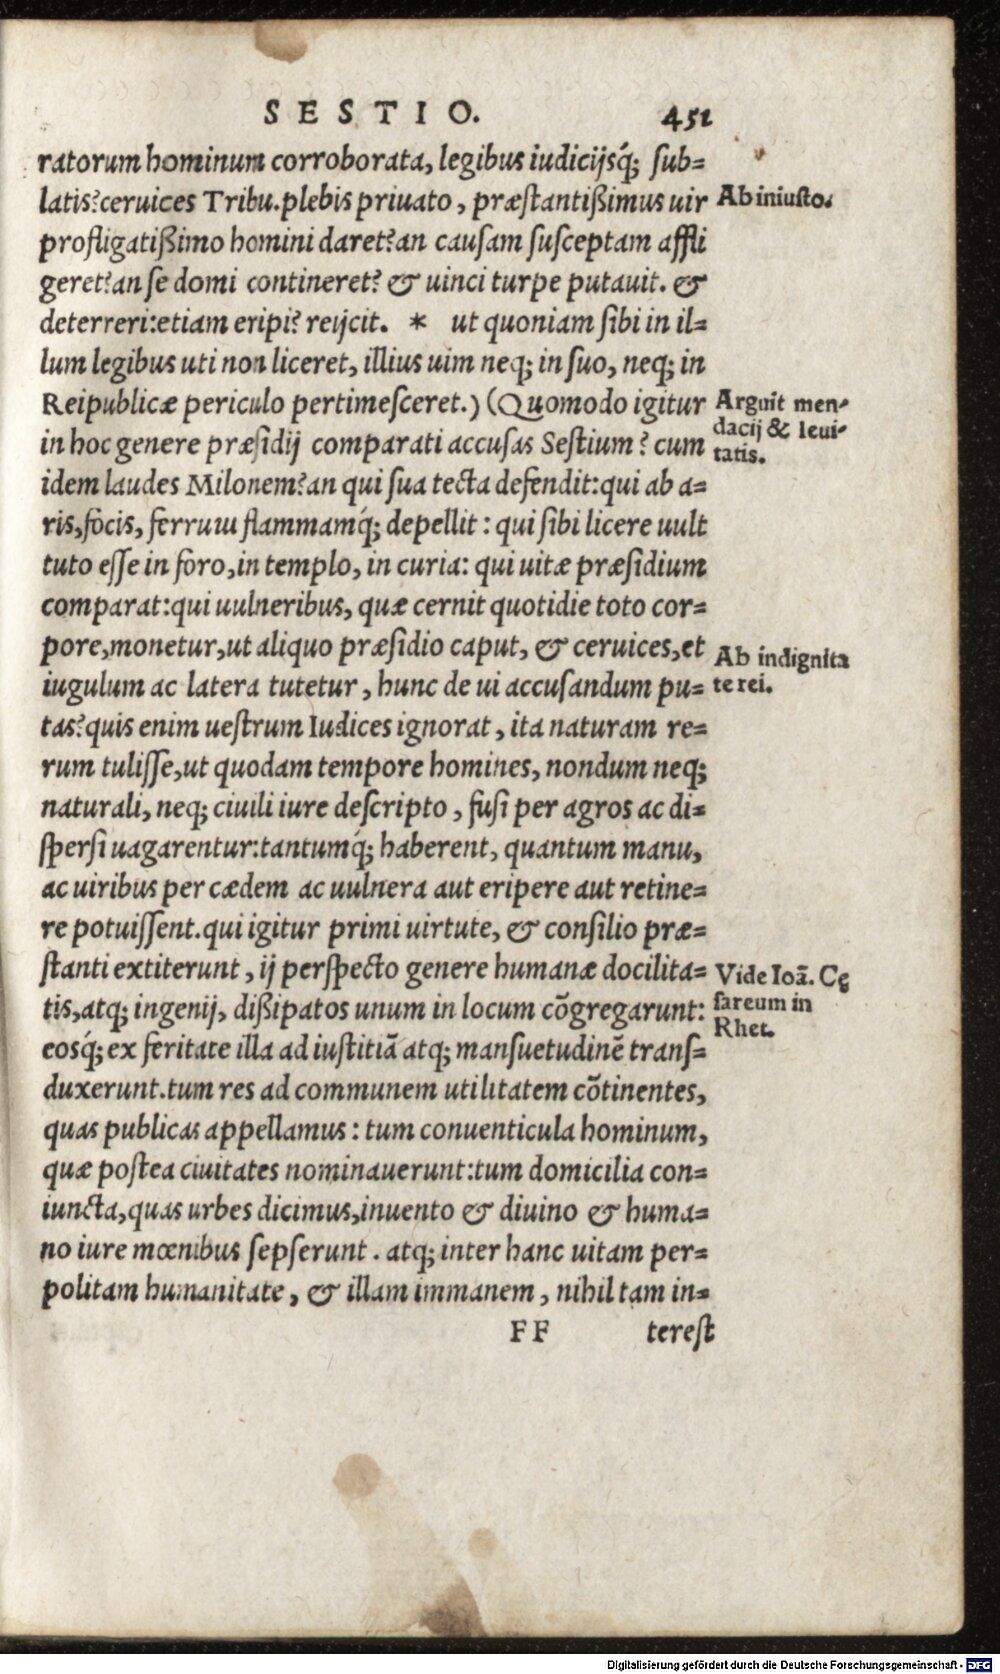 SESTIO. 451
ratorum hominum corroborata, legibus iudicijsq́; sub=
latis?ceruices Tribu.plebis priuato, præstantißimus uir
profligatißimo homini daret?an causam susceptam affli
geret?an se domi contineret? & uinci turpe putauit. &
deterreri:etiam eripi? reijcit. * ut quoniam sibi in il=
lum legibus uti non liceret, illius uim neq; in suo, neq; in
Reipublicæ periculo pertimesceret.) (Quomodo igitur
in hoc genere præsidij comparati accusas Sestium? cum
idem laudes Milonem?an qui sua tecta defendit:qui ab a=
ris,focis, ferrum flammamq́; depellit: qui sibi licere uult
tuto esse in foro,in templo, in curia: qui uitæ præsidium
comparat:qui uulneribus, quæ cernit quotidie toto cor=
pore,monetur,ut aliquo præsidio caput, & ceruices,et
iugulum ac latera tutetur, hunc de ui accusandum pu=
tas?quis enim uestrum Iudices ignorat, ita naturam re=
rum tulisse,ut quodam tempore homines, nondum neq;
naturali, neq; ciuili iure descripto, fusi per agros ac di=
spersi uagarentur:tantumq́; haberent, quantum manu,
ac uiribus per cædem ac uulnera aut eripere aut retine=
re potuissent.qui igitur primi uirtute, & consilio præ=
stanti extiterunt, ij perspecto genere humanæ docilita=
tis,atq; ingenij, dißipatos unum in locum cõgregarunt:
eosq́; ex feritate illa ad iustitiã atq; mansuetudinẽ trans=
duxerunt.tum res ad communem utilitatem cõtinentes,
quas publicas appellamus: tum conuenticula hominum,
quæ postea ciuitates nominauerunt:tum domicilia con=
iuncta,quas urbes dicimus,inuento & diuino & huma=
no iure mœnibus sepserunt. atq; inter hanc uitam per=
politam humanitate, & illam immanem, nihil tam in=
FF terest
Ab iniusto.
Arguit men-
dacij & leui-
tatis.
Ab indignita
te rei.
Vide Ioã. Cę
sareum in
Rhet.
Digitalisierung gefördert durch die Deutsche Forschungsgemeinschaft - DFG